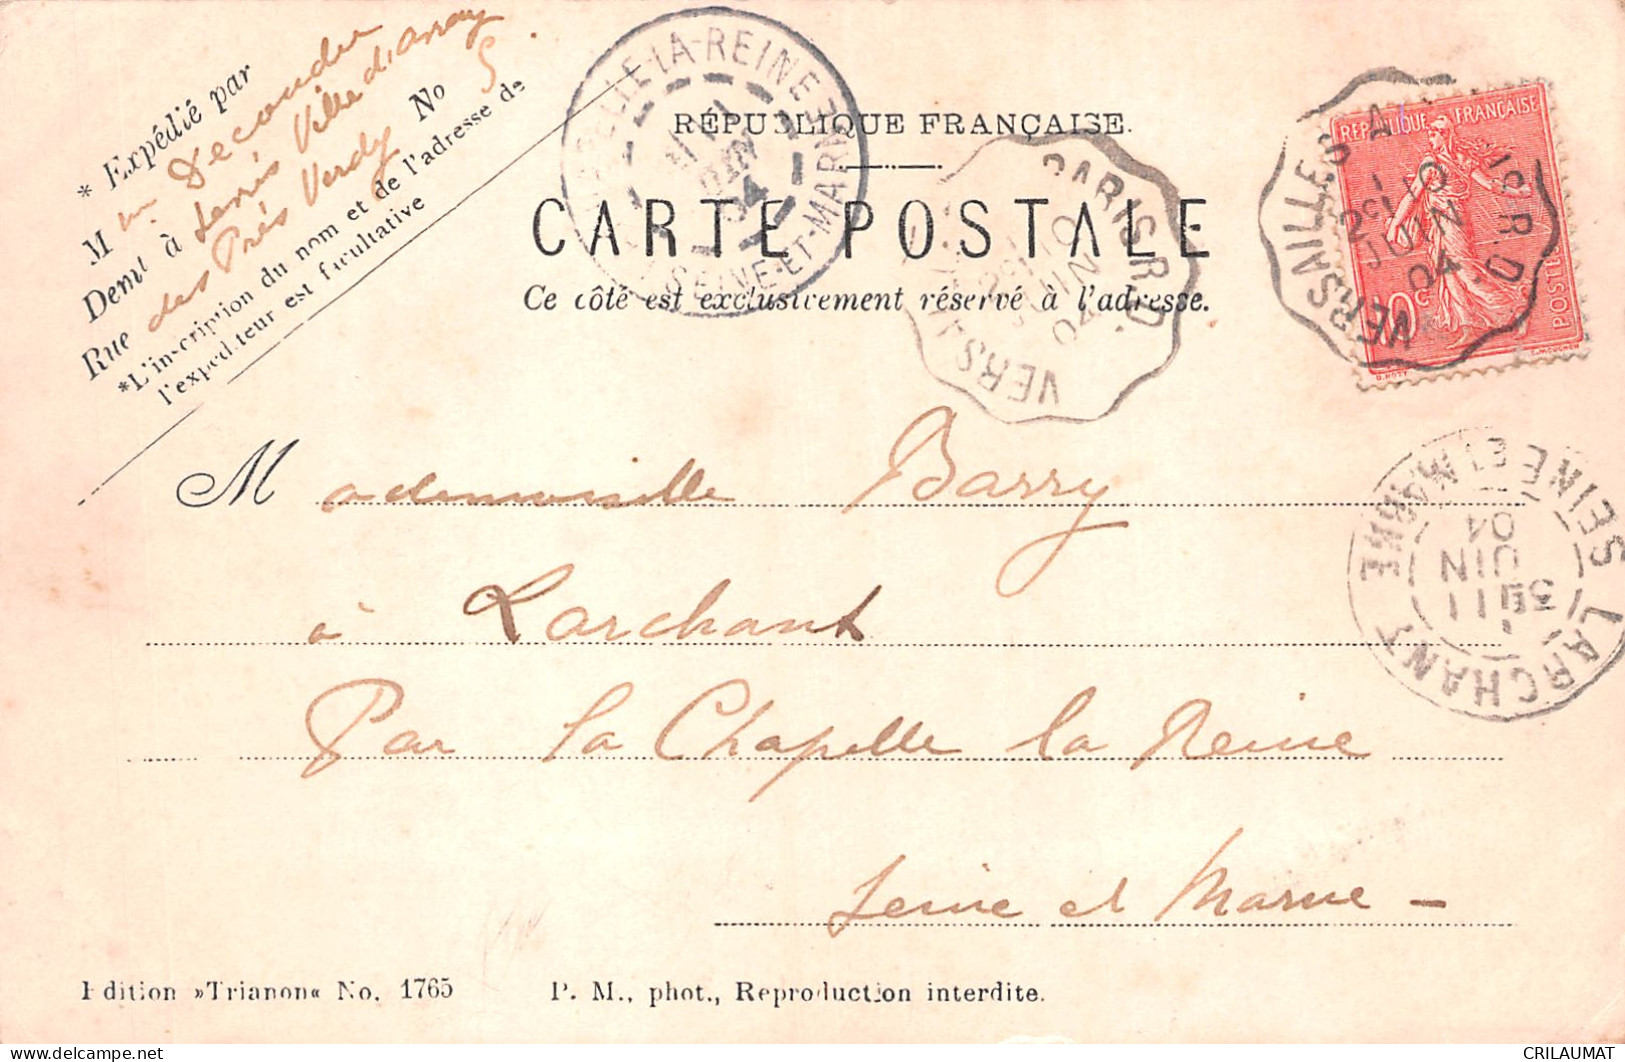 * Expédié par
Mme Decoudu
Demt à Denis Ville d'Avray
Rue des Prés Verdy No 5.
*L'inscription du nom et de l'adresse de
l'expediteur est facultative
RÉPUBLIQUE FRANÇAISE.
CARTE POSTALE
Ce côté est exclusivement réservé à l'adresse.
LA-REINE
SEINE-ET-MARNE
JUIN
04
PARIS R.D.
VERS
10
JUIN
04
VERSAILLES A PARIS R.D.
10
JUIN
04
REPUBLIQUE FRANÇAISE
POSTES
10c
LARCHANT SEINE ET MARNE
11
JUIN
04
Mademoiselle Barry
à Larchant
Par la Chapelle la Reine
Seine et Marne -
Edition »Trianon« No. 1765
P. M., phot., Reproduction interdite.
CRILAUMAT